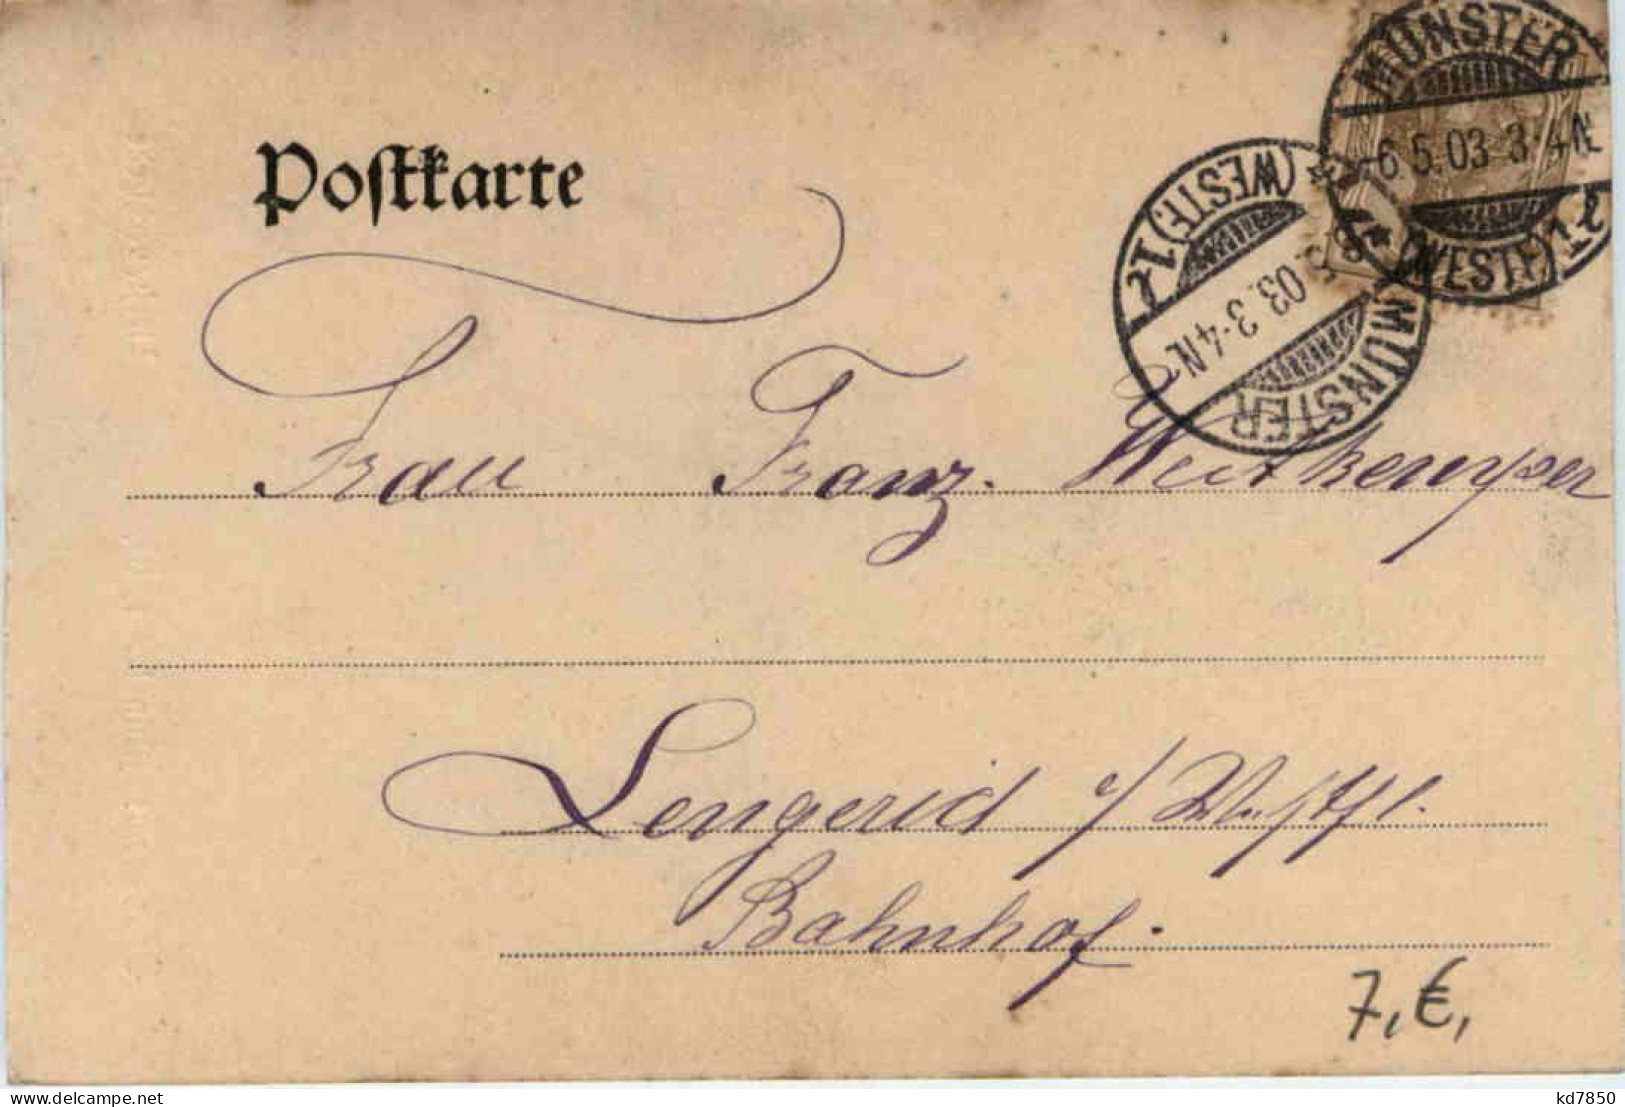 Postkarte
MÜNSTER
6.5.03 3-4N
(WESTF.) 1 l
*
MÜNSTER
03.3-4N
(WESTF.) 1 l
*
Frau Franz. Westkemper
Lengerich i/ Westfl.
Bahnhof.
7,€,
kd7850